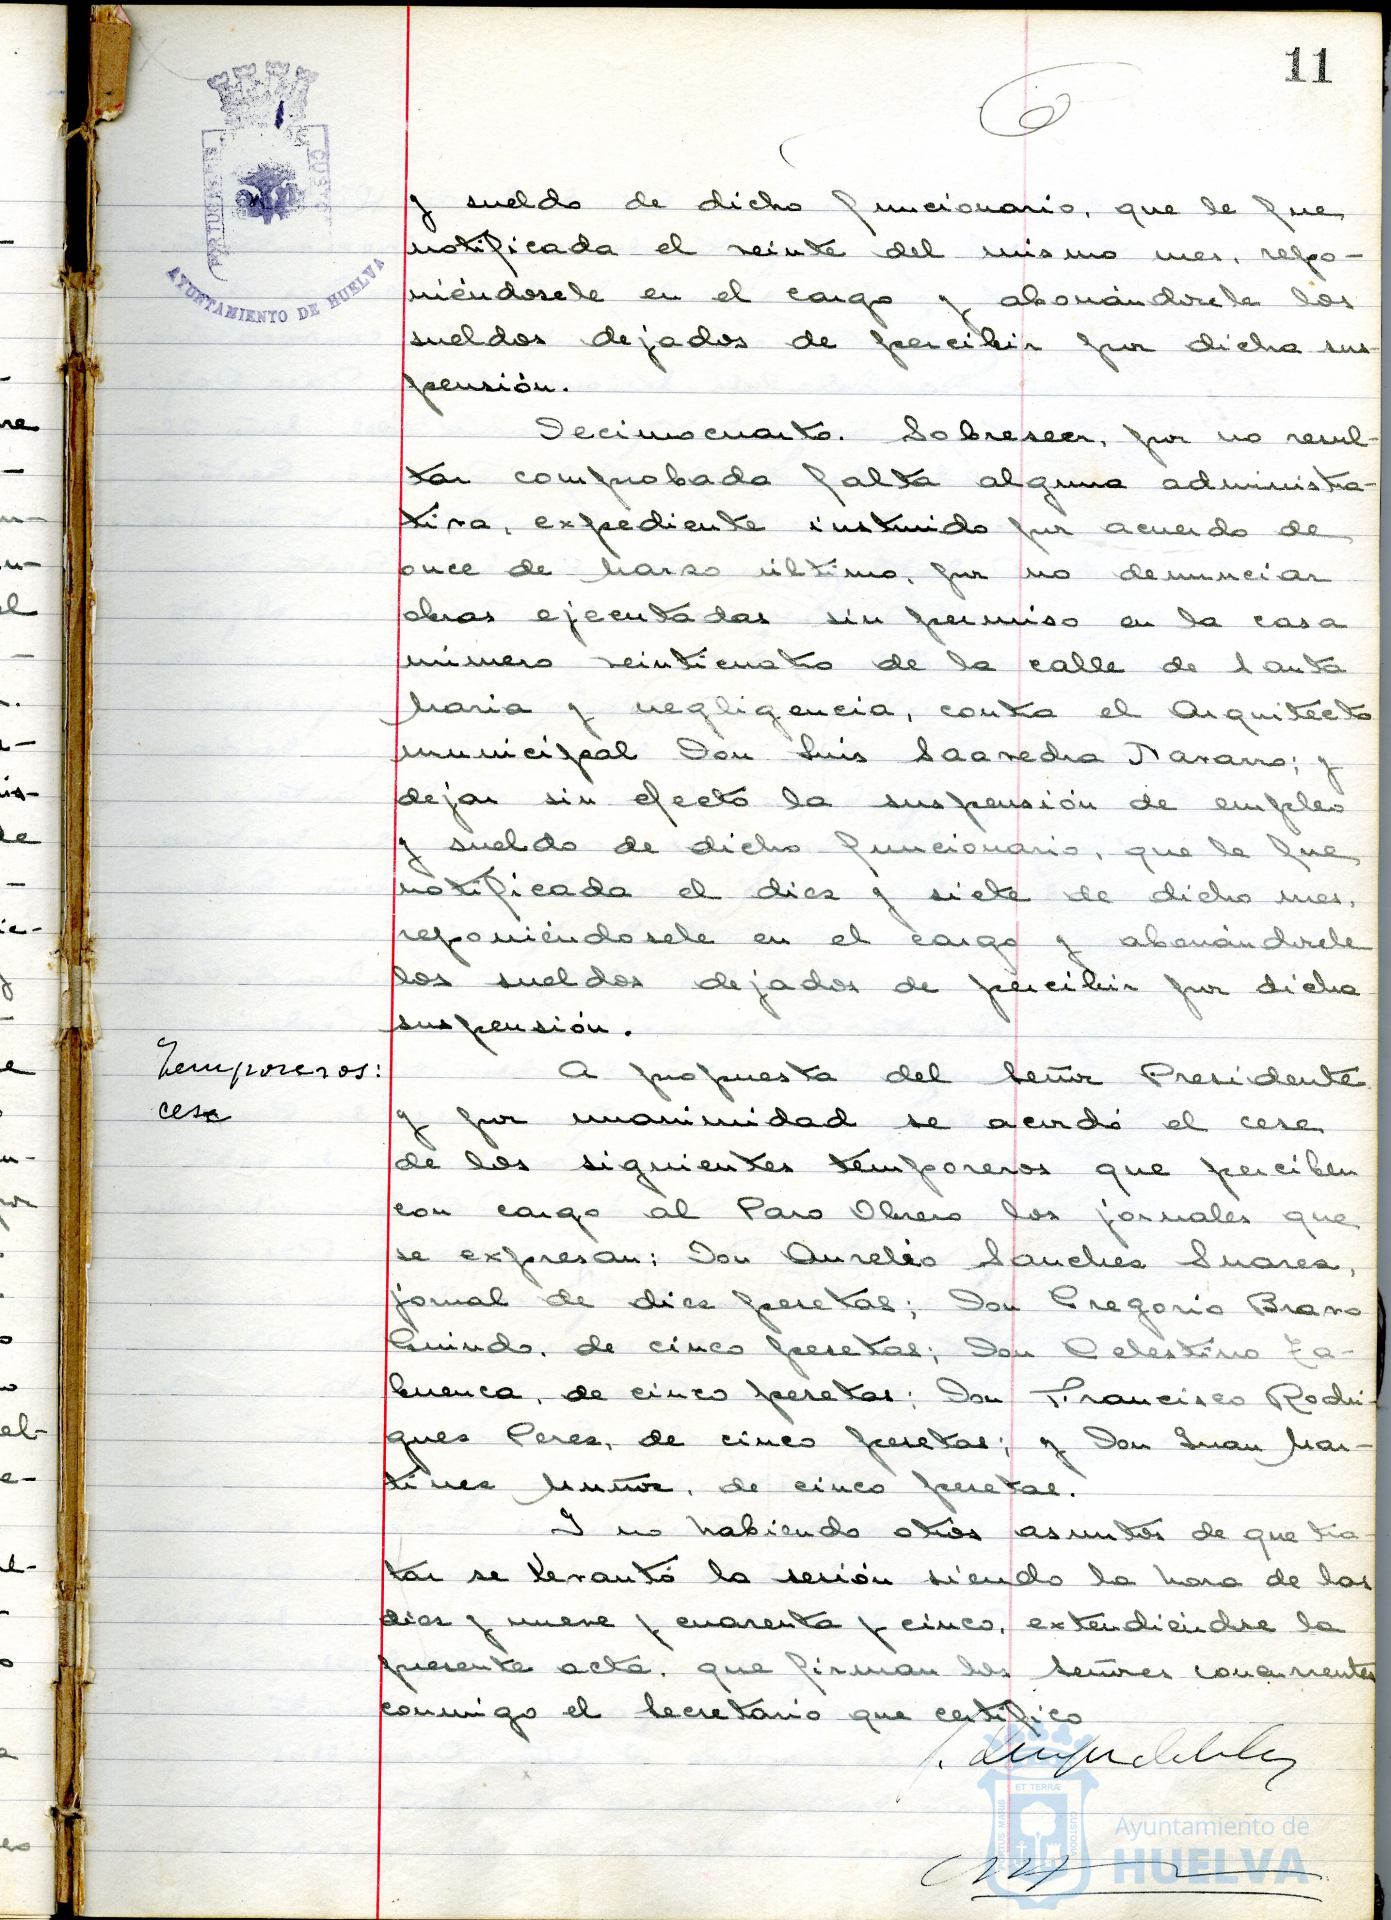 11
AYUNTAMIENTO DE HUELVA
y sueldo de dicho funcionario, que le fue
notificada el veinte del mismo mes, repo-
niéndosele en el cargo y abonándosele los
sueldos dejados de percibir por dicha sus-
pensión.
Decimocuarto. Sobreseer, por no resul-
tar comprobada falta alguna administra-
tiva, expediente instruido por acuerdo de
once de Marzo último, por no denunciar
obras ejecutadas sin permiso en la casa
número veinticuatro de la calle de Santa
Maria y negligencia, contra el Arquitecto
municipal Don Luis Saavedra Navarro; y
dejar sin efecto la suspensión de empleo
y sueldo de dicho funcionario, que le fue
notificada el diez y siete de dicho mes,
reponiéndosele en el cargo y abonándosele
los sueldos dejados de percibir por dicha
suspensión.
Temporeros:
cese
A propuesta del Señor Presidente
y por unanimidad se acordó el cese
de los siguientes temporeros que perciben
con cargo al Paro Obrero los jornales que
se expresan: Don Aurelio Sanchez Suarez,
jornal de diez pesetas; Don Gregorio Bravo
Guindo, de cinco pesetas; Don Celestino Za-
buenca, de cinco pesetas; Don Francisco Rodri-
guez Perez, de cinco pesetas; y Don Juan Mar-
tinez Muñoz, de cinco pesetas.
Y no habiendo otros asuntos de que tra-
tar se levantó la sesión siendo la hora de las
diez y nueve y cuarenta y cinco, extendiéndose la
presente acta, que firman los Señores concurrentes
conmigo el Secretario que certifico
ET TERRÆ
CUSTODIA
Ayuntamiento de
HUELVA